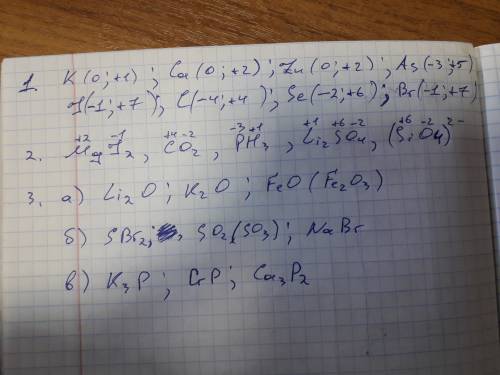 1. K(0;+1); Ca(0;+2); Zn(0;+2); As(-3;+5)
J(-1;+7); C(-4;+4); Se(-2;+6); Br(-1;+7)
2. Mg⁺²J₂⁻¹, C⁺⁴O₂⁻², P⁻³H₃⁺¹, Li₂⁺¹S⁺⁶O₄⁻², (Si⁺⁶O₄⁻²)²⁻
3. а) Li₂O; K₂O; FeO(Fe₂O₃)
б) SBr₂; SO₂(SO₃); NaBr
в) K₃P; CrP; Ca₃P₂